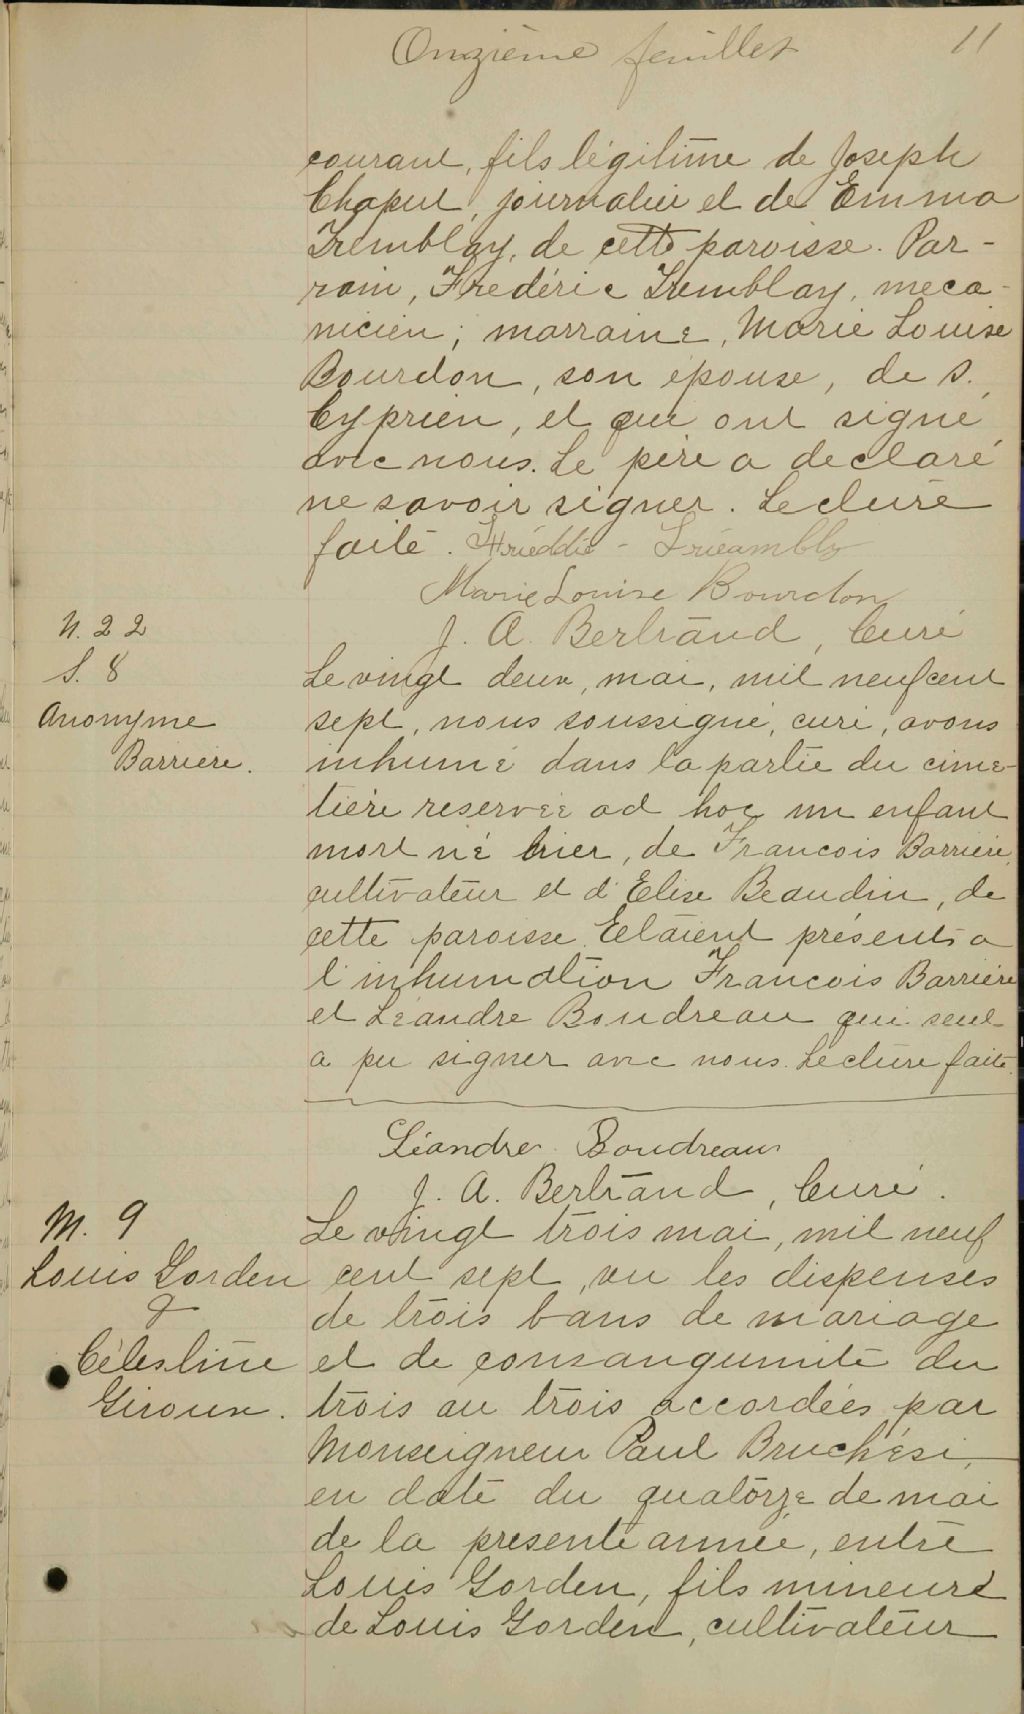 Onzième feuillet 11
courant, fils légitime de Joseph
Chaput, journalier et de Emma
Tremblay, de cette paroisse. Par-
rain, Frédéric Tremblay, méca-
nicien; marraine, Marie Louise
Bourdon, son épouse, de S.
Cyprien, et qui ont signé
avec nous. Le père a declaré
ne savoir signer. Lecture
faite. Fréddie - Trieambly
Marie Louise Bourdon
J. A. Bertrand, Curé
N. 22
S. 8
Anonyme
Barrière.
Le vingt deux, mai, mil neuf cent
sept, nous soussigné, curé, avons
inhumé dans la partie du cime-
tière reservée ad hoc un enfant
mort né hier, de Francois Barrière,
cultivateur et d'Elise Beaudin, de
cette paroisse. Etaient présents a
l'inhumation Francois Barrière
et Léandre Boudreau qui seul
a pu signer avec nous. Lecture faite.
Léandre Boudreau
J. A. Bertrand, Curé.
M. 9
Louis Gorden
&
Célestine
Giroux.
Le vingt trois mai, mil neuf
cent sept, vu les dispenses
de trois bans de mariage
et de consanguinité du
trois au trois accordées par
Monseigneur Paul Bruchési,
en date du quatorze de mai
de la presente année, entre
Louis Gorden, fils mineur
de Louis Gorden, cultivateur